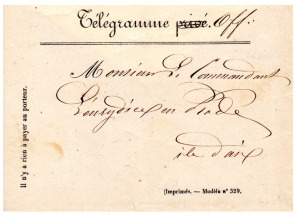 Télégramme privé. Off:
Monsieur L. Commandant
L'eurydice en Rade
ile d'aix
Il n'y a rien à payer au porteur.
(Imprimés. — Modèle n° 329.